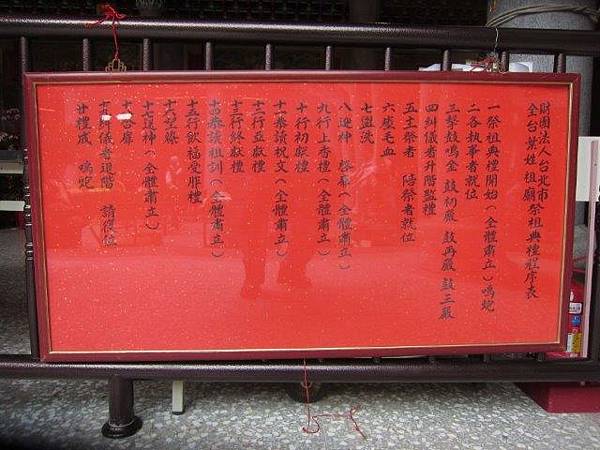 財團法人台北市
全台葉姓祖廟祭祖典禮程序表
一祭祖典禮開始(全體肅立)鳴炮
二各執事者就位
三擊鼓鳴金 鼓初嚴 鼓再嚴 鼓三嚴
四糾儀者升階監禮
五主祭者 陪祭者就位
六瘞毛血
七盥洗
八迎神 啓扉(全體肅立)
九行上香禮(全體肅立)
十行初獻禮
十一恭讀祝文(全體肅立)
十二行亞獻禮
十三行終獻禮
十四恭讀祖訓(全體肅立)
十五行飲福受胙禮
十六望燎
十七送神(全體肅立)
十八闔扉
十九糾儀者退階 請復位
廿禮成 鳴炮